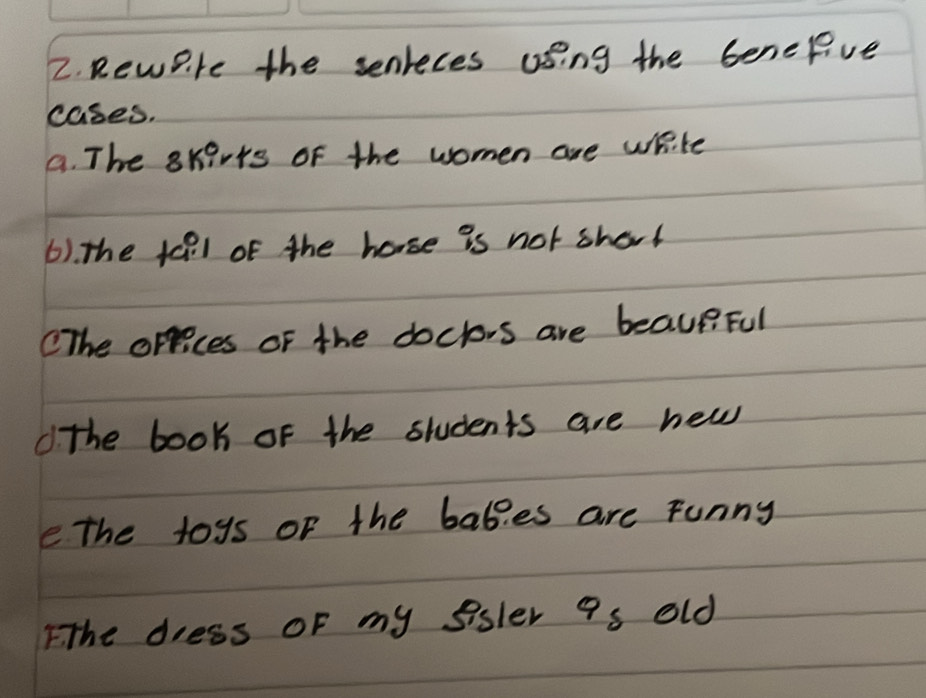 2. Rewrite the senteces using the Genetive
cases.
a. The skirts of the women are white
b). The tail of the horse is not short
c The offices of the doctors are beautiful
d. The book of the students are new
e. The toys of the babies are funny
F. The dress of my sister is old